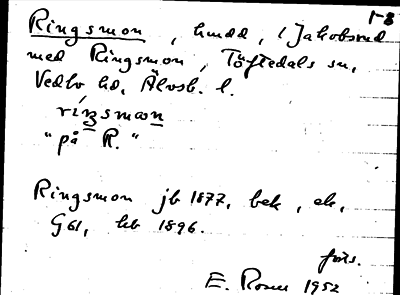 1-8
Ringsmon, hmdd, i Jakobsrud
med Ringsmon, Töftedals sn,
Vedbo hd, Älvsb. l.
ríŋsmon
"på R."
Ringsmon jb 1877, bek, ek,
G61, hb 1896.
förs.
E. Rosen 1952